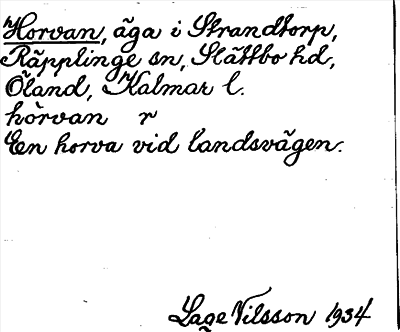 Horvan, äga i Strandtorp,
Räpplinge sn, Slättbo hd,
Öland, Kalmar l.
hòrvan r
En horva vid landsvägen.
Lage Nilsson 1934